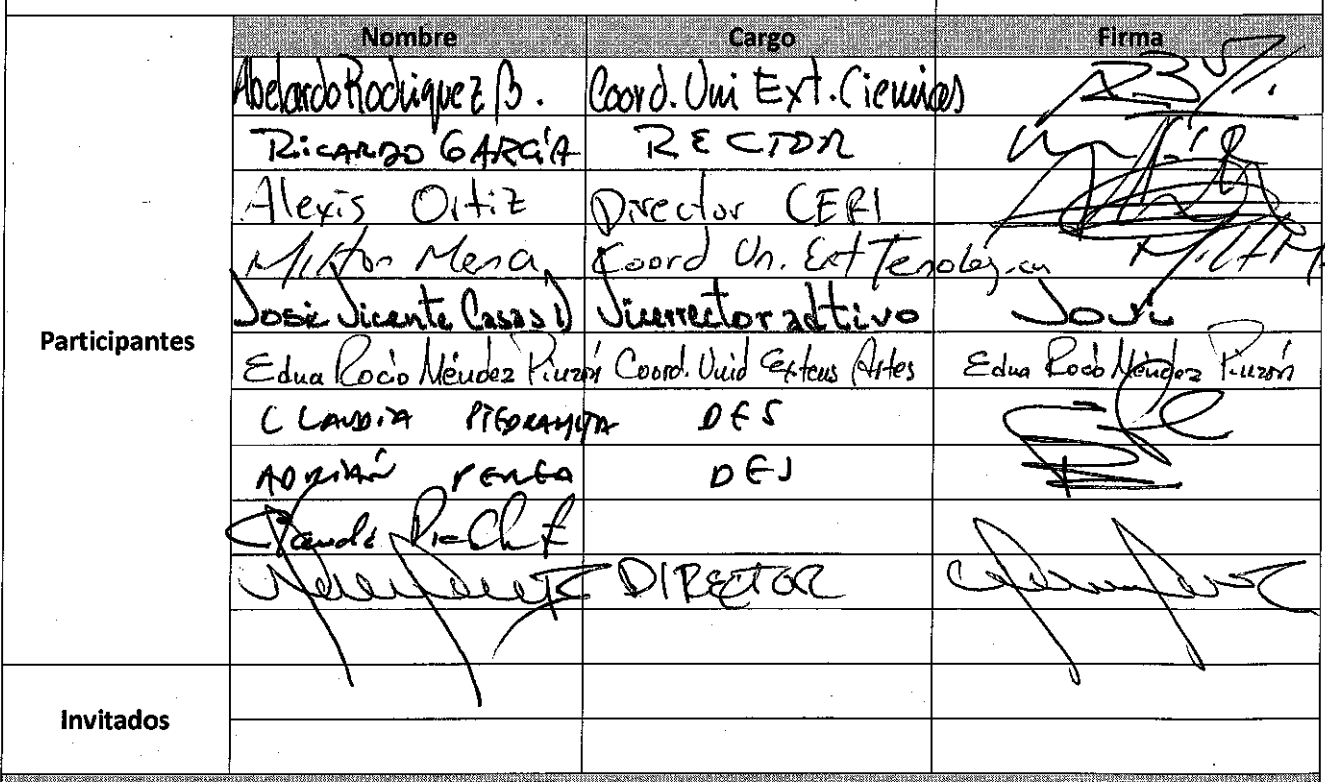 Nombre Cargo Firma
Abelardo Rodriguez B. Coord. Uni Ext. Ciencias
Ricardo GARCÍA RECTOR
Alexis Ortiz Director CERI
Milton Mena Coord Un. Ext Tenológica Milt M
José Vicente Casas D Vicerrector adtivo José
Participantes
Edna Rocío Méndez Pinzón Coord. Unid Extens Artes Edna Rocío Méndez Pinzón
CLAUDIA PIEDRAHITA DES
ADRIÁN DEJ
DIRECTOR
Invitados